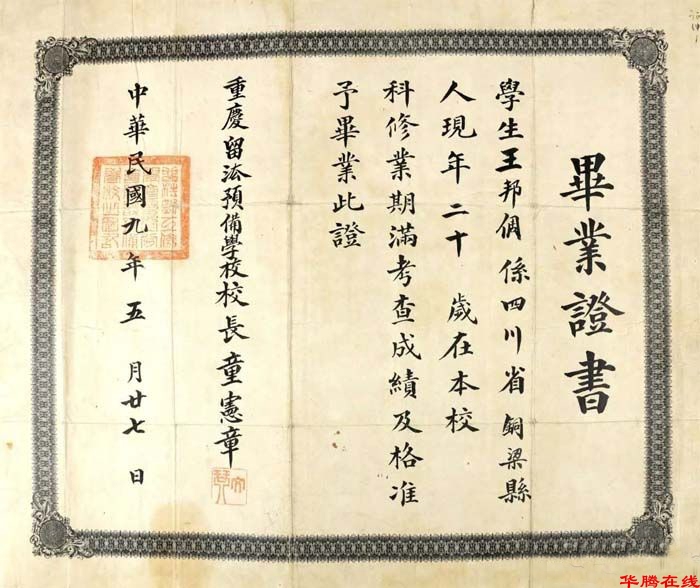 畢業證書
學生王邦倜係四川省銅梁縣
人現年二十歲在本校
科修業期滿考查成績及格准
予畢業此證
重慶留法預備學校校長童憲章
中華民國九年五月廿七日
华腾在线